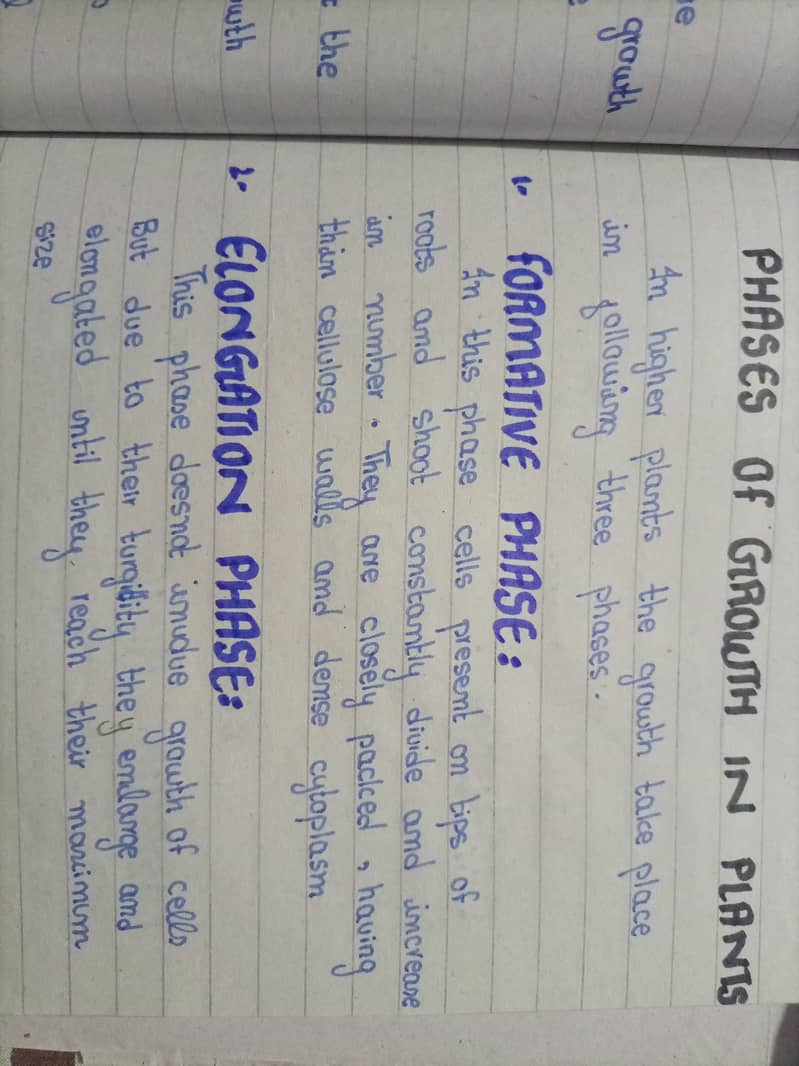 PHASES Of GROWTH IN PLANTS
In higher plants the growth take place
in following three phases.
1. fORMATIVE PHASE:
In this phase cells present on tips of
roots and shoot constantly divide and increase
in number. They are closely packed, having
thin cellulose walls and dense cytoplasm
2. ELONGATION PHASE:
This phase doesnot inudue growth of cells
But due to their turgidity they enlarge and
elongated until they reach their maximum
size
growth
the
wth